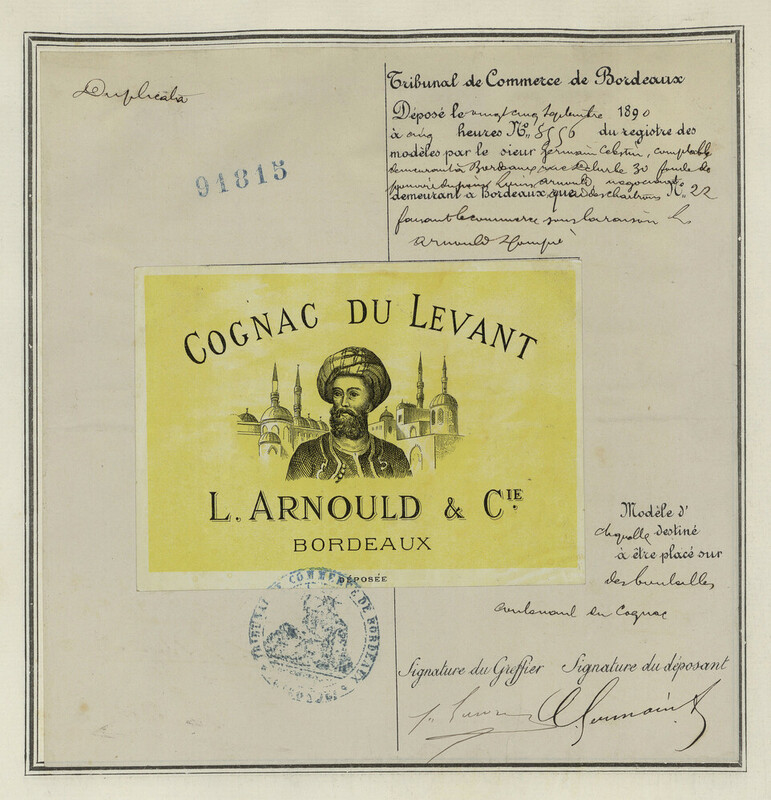 Duplicata
91815
Tribunal de Commerce de Bordeaux
Déposé le vingt cinq Septembre 1890
à cinq heures N° 8556 du registre des
modèles par le sieur Germain Célestin, comptable
demeurant à Bordeaux rue 30 fondé de
pouvoir du sieur Louis Arnould, négociant
demeurant à Bordeaux quai des Chartrons N° 22
faisant le commerce sous la raison L.
Arnould & Compie
COGNAC DU LEVANT
L. ARNOULD & CIE.
BORDEAUX
DÉPOSÉE
Modèle d'
étiquette destiné
à être placé sur
des bouteilles
contenant du Cognac
TRIBUNAL DE COMMERCE DE BORDEAUX
Signature du Greffier Signature du déposant
C. Germain